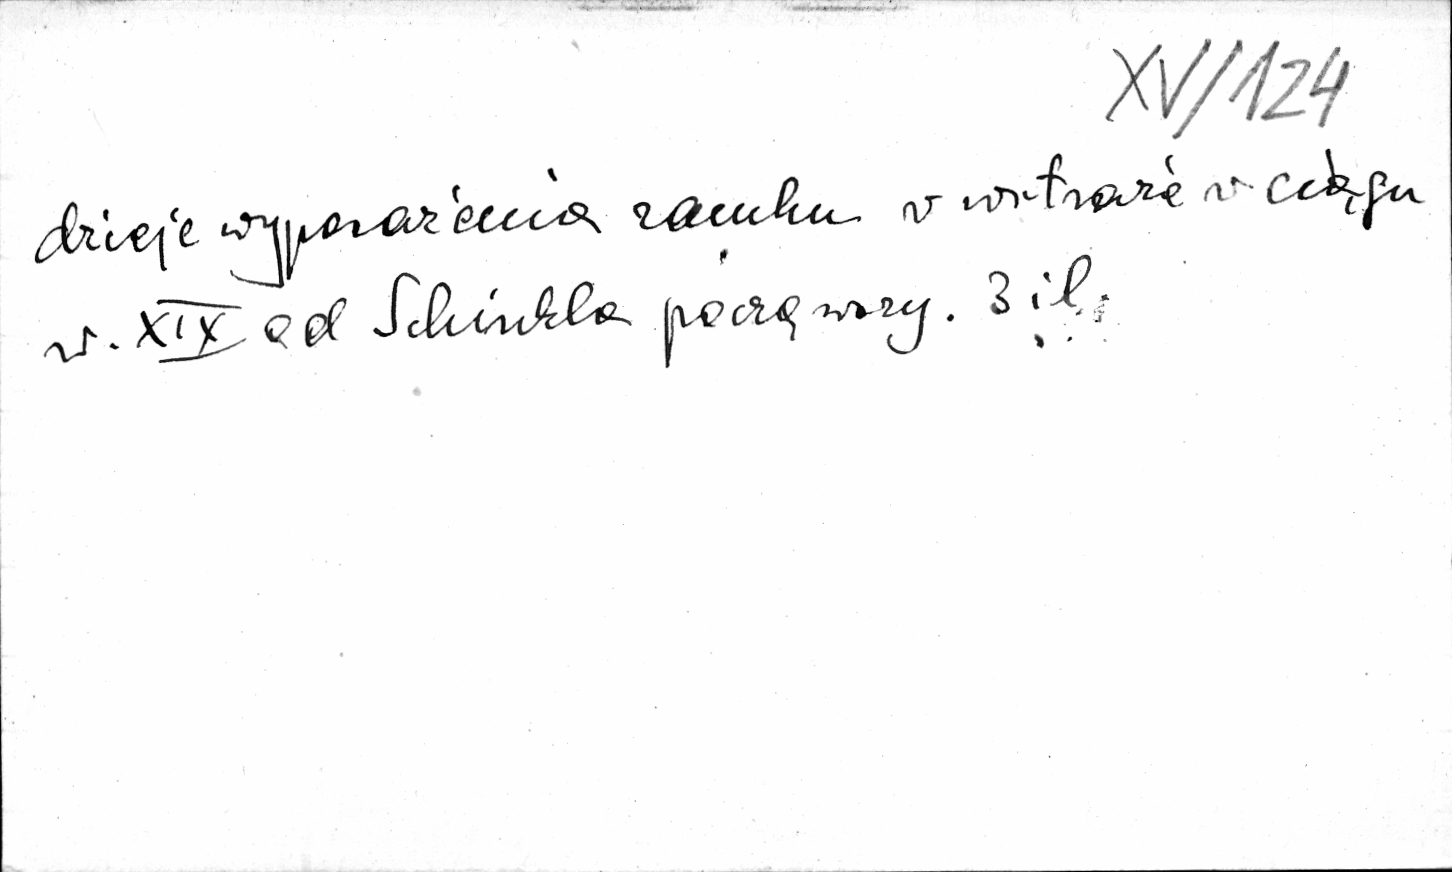 XV/124
dzieje wyposażenia zamku w witraże w ciągu
w. XIX od Schinkla począwszy. 3 il.